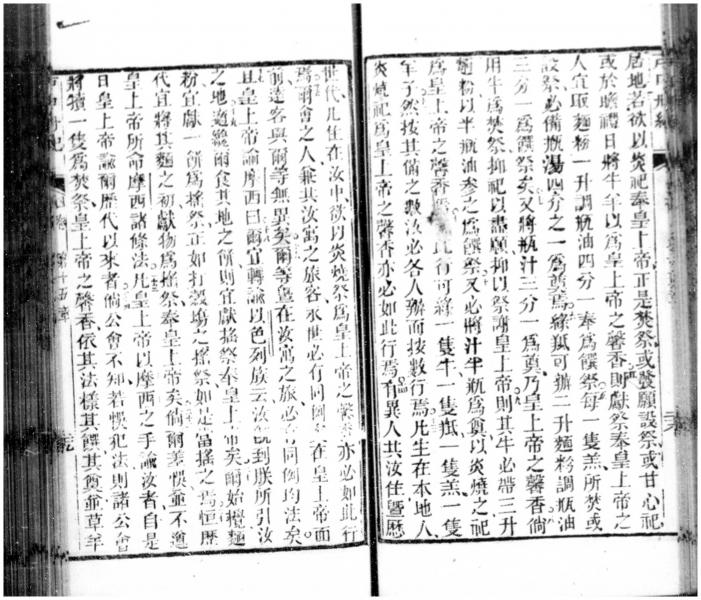 戶口冊紀
居地若欲以炎祀奉皇上帝正是焚祭或發願設祭或甘心祀
或於瞻禮日將牛羊以為皇上帝之馨香則獻祭奉皇上帝之
人宜取麵粉一升調瓶油四分一奉為饌祭每一隻羔所焚或
設祭必備瓶湯四分之一為奠焉緣羝可獻二升麵粉調瓶油
三分一為饌祭矣又將瓶汁三分一為奠乃皇上帝之馨香倘
用牛為焚祭抑祀以盡願抑以祭謝皇上帝則其牛必帶三升
麵粉以半瓶油參之為饌祭又必將汁半瓶為奠以炎燒之祀
為皇上帝之馨香焉此行可緣一隻牛一隻羝一隻羔一隻
羊子然按其備之數汝必各人辦而按數行焉凡生在本地人
炎燒祀為皇上帝之馨香亦必如此行焉有異人共汝住暨歷
世代凡住在汝中欲以炎燒祭為皇上帝之馨香亦必如此行
焉爾會之人兼共汝寓之旅客永世必有同例在皇上帝面
前遠客與爾等無異矣爾等暨在汝寓之旅必有同例均法矣
且皇上帝諭摩西曰爾宜轉諭以色列族云汝既到朕所引汝
之地迤纔爾食其地之餅則宜獻搖祭奉皇上帝矣爾始攪麵
粉宜獻一餅為搖祭正如打穀場之搖祭如是當搖之焉恆歷
代宜將其麵之初獻物為搖祭奉皇上帝矣倘爾差悞並不遵
皇上帝所命摩西諸條法凡皇上帝以摩西之手諭汝者自是
日皇上帝諭爾歷代以來者倘公會不知若悞犯法則諸公會
將犢一隻為焚祭皇上帝之馨香依其法樣其饌其奠並草羊
第十五章